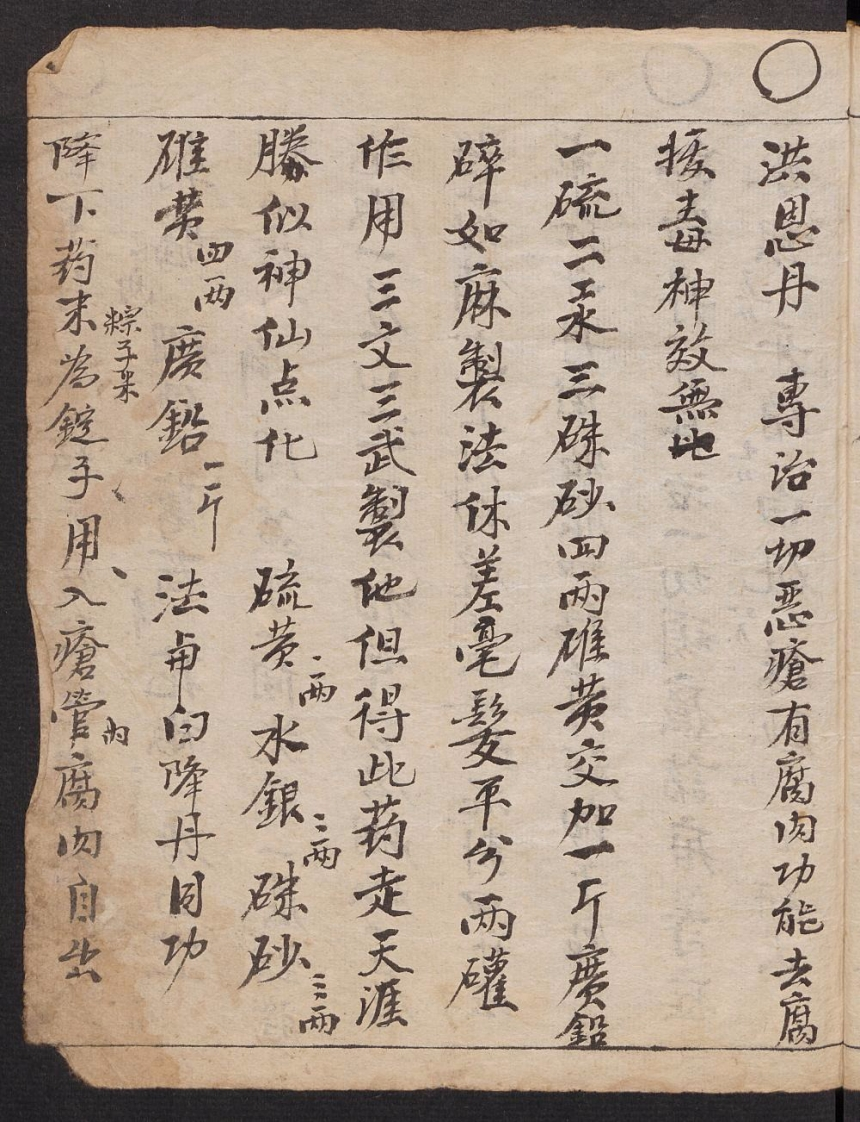 洪恩丹　專治一切恶瘡有腐肉功能去腐
拔毒神效無比
一硫二汞三硃砂四两雄黄交加一斤廣鉛
碎如麻製法休差毫髮平分两礶
作用三文三武製他但得此药走天涯
勝似神仙点化　硫黄一两水銀二两硃砂三两
雄黄四两廣鉛一斤法与白降丹同功
降下药末為錠子粽子米用入瘡管内腐肉自出